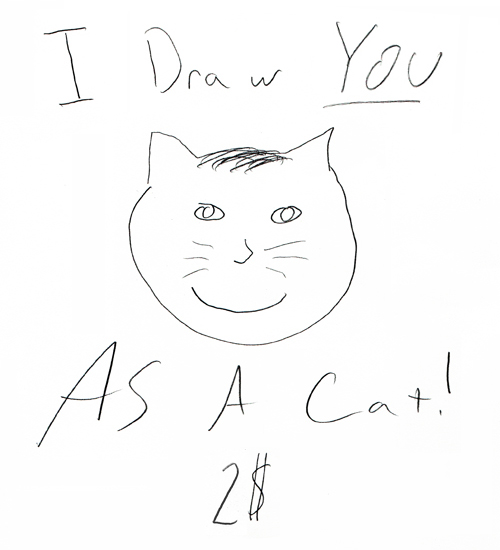 I Draw YOU
As A Cat!
2$